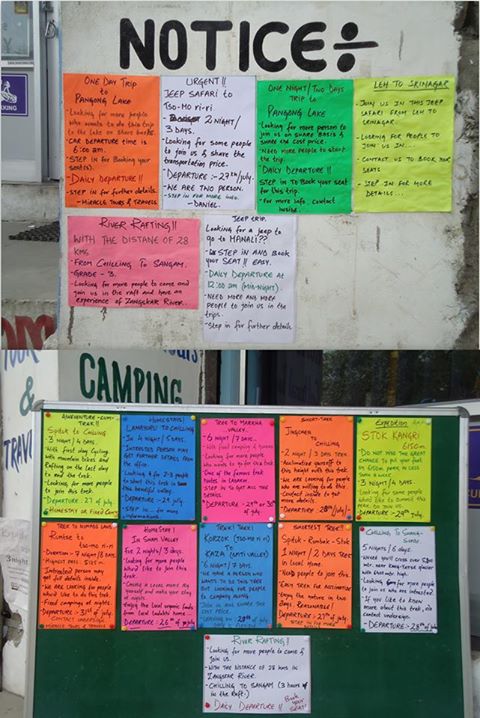 NOTICE÷
ONE DAY TRIP
to
PANGONG LAKE
- Looking for more people
who wants to do this trip
to the lake on share basis.
CAR DEPARTURE time is
6:00 am.
- STEP in for Booking your
seat(s).
- DAILY DEPARTURE!!
- STEP in for further details.
- MIRACLE TOURS & TRAVELS
URGENT!!
JEEP SAFARI to
TSO-MO ri-ri
2 NIGHT/
3 DAYS.
- Looking for some people
to join us & share the
transportation price.
- DEPARTURE :- 29th/july.
- WE ARE TWO PERSON.
- STEP IN FOR MORE INFO.
- DANIEL.
ONE NIGHT/TWO DAYS
TRIP to
PANGONG LAKE
- Looking for more person to
join us on share BASIS &
share the cost price.
NEED MORE PEOPLE to start
the trip.
- DAILY DEPARTURE!!
STEP in To Book your seat
for this trip.
- For more info. Contact
inside.
LEH TO SRINAGAR
- JOIN US IN THIS JEEP
SAFARI FROM LEH TO
SRINAGAR.
- LOOKING FOR PEOPLE TO
JOIN US IN...
- CONTACT US TO BOOK YOUR
SEATS
- STEP IN FOR MORE
DETAILS...
RIVER RAFTING!!
WITH THE DISTANE OF 28
KMS
- FROM CHILLING TO SANGAM.
GRADE - 3.
- Looking for more people to come and
join us in the raft and have an
experience of ZANGSKAR RIVER.
JEEP TRIP.
Looking for a jeep to
go to MANALI??
- STEP in AND BOOK
your SEAT!! EASY.
- DAILY DEPARTURE at
12:00 am (MID-NIGHT).
- NEED MORE AND MORE
PEOPLE to join us in the
trips.
- Step in for further details
&
TRAVE
CAMPING
TREK!!
SPITUK to CHILLING
- 3 NIGHT/4 DAYS
- With first day Cycling
with mountain bikes and
Rafting on the last day
to end the trek.
- Looking for more people
to join this trek.
- DEPARTURE: 27 of july
HOMESTAY or FIXED CAMP
HOMESTAYS!
LAMAYURU TO CHILLING
- In 4 NIGHT/5 DAYS.
- INTERESTED PERSON MAY
GET FURTHER DETAILS FROM
the office.
- Looking 4 for 2-3 people
to start this trek in this
beautiful valley.
- DEPARTURE:- 2nd july
- Step in... for more
TREK TO MARKHA
VALLEY.
- 6 NIGHT/7 DAYS.
- With fixed camping & ponies
- Looking for more people
who wants to go for this trek
- One of the famous trek
routes in LADAKH.
- STEP in to get all the
details.
- DEPARTURE:- 29th or 30th
of july.
SHORT-TREK
JINGCHEN
TO
CHILLING
- 2 NIGHT/3 DAYS TREK
- Acclimatise yourself to
this height with this trek.
- WE ARE looking for people
who are willing to do this.
- Contact inside to get
more idea.
- DEPARTURE:- 28th/july/-
EXPEDITION
STOK KANGRI
6150 m.
- DO NOT MISS THE GREAT
CHANCE to put your feet
on 6150m. PEAK in LESS
than a week.
- 3 NIGHT/4 DAYS
- Looking for some people
who'd like to summit this
peak. DO JOIN US.
- DEPARTURE:- 29th july
TREK TO NOMADS LAND
Rumtse to
(TSO-MO ri-ri)
- DURATION - 7 NIGHT/8 DAYS.
- HIGHEST PASS:
- Interested person may
get full details inside.
- WE ARE LOOKING for people
who'd like to do this trek.
- Fixed campings at nights.
- DEPARTURE:- 31st of july.
CONTACT UNDERSIGN
MIRACLE TOURS & TRAVELS
HOMESTAY!
IN SHAM VALLEY
for 2 nights/3 days.
- Looking for more people
who'd like to join this
trek.
- SHARE a local home stay
yourself and make your stay
of nights.
- Enjoy the local organic foods
from local ladakhi home.
- DEPARTURE: 26th of july
TREK! TREK!
KORZOK (TSO-MO ri-ri)
TO
KAZA (SPITI VALLEY)
- 6 NIGHT/7 DAYS.
- WE HAVE A PERSON WHO
WANTS TO DO THIS TREK
BUT LOOKING FOR PEOPLE
to company along.
- JOIN IN AND SHARE THE
COST PRICE.
- LEAVING ON: 28th of july
SHORTEST TREK!!
Spituk - Rumbak - Stok
1 NIGHT/2 DAYS TREK
in Local Home.
- Keep people to join this.
EASY TREK FOR ACCLIMATISE
- Enjoy the nature in two
days. REASONABLE!
DEPARTURE:- 27th of july
CHILLING TO
5 NIGHTS/6 DAYS.
- Looking for more people
to join us who are interested.
- IF you like to know
more about this trek, do
contact undersign.
- DEPARTURE: 28th july
RIVER RAFTING!!
- Looking for more people to come &
join US.
- WITH the distance of 28 kms in
ZANGSKAR RIVER.
- CHILLING TO SANGAM (3 hours of
in the Raft.)
- DAILY DEPARTURE!!
BOOK
YOUR
SEAT!